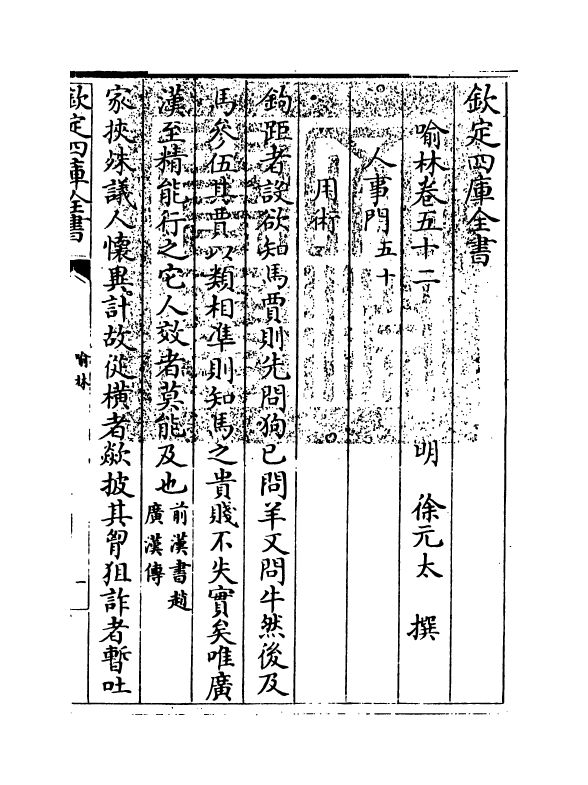 欽定四庫全書
喻林卷五十二
明 徐元太 撰
人事門五十
用術
鉤距者設欲知馬賈則先問狗已問羊又問牛然後及
馬參伍其賈以類相準則知馬之貴賤不失實矣唯廣
漢至精能行之它人效者莫能及也前漢書趙
廣漢傳
家挾殊議人懷異計故從橫者歘披其胷狙詐者暫吐
欽定四庫全書
喻林
一